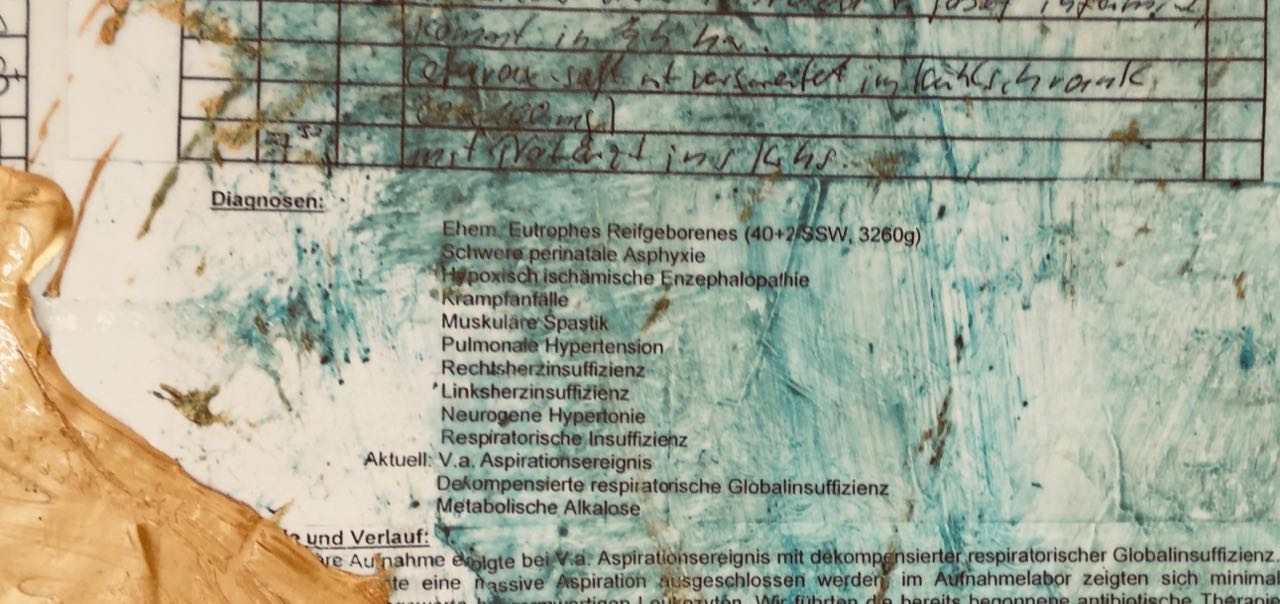 kommt in
Cefurox. saft ist vorbereitet im Kühlschrank
7
mit Notarzt ins Khs.
Diagnosen:
Ehem. Eutrophes Reifgeborenes (40+2 SSW, 3260g)
Schwere perinatale Asphyxie
Hypoxisch ischämische Enzephalopathie
Krampfanfälle
Muskuläre Spastik
Pulmonale Hypertension
Rechtsherzinsuffizienz
Linksherzinsuffizienz
Neurogene Hypertonie
Respiratorische Insuffizienz
Aktuell: V.a. Aspirationsereignis
Dekompensierte respiratorische Globalinsuffizienz
Metabolische Alkalose
und Verlauf:
Aufnahme erfolgte bei V.a. Aspirationsereignis mit dekompensierter respiratorischer Globalinsuffizienz.
eine massive Aspiration ausgeschlossen werden, im Aufnahmelabor zeigten sich minimal
Leukozyten. Wir führten die bereits begonnene antibiotische Therapie